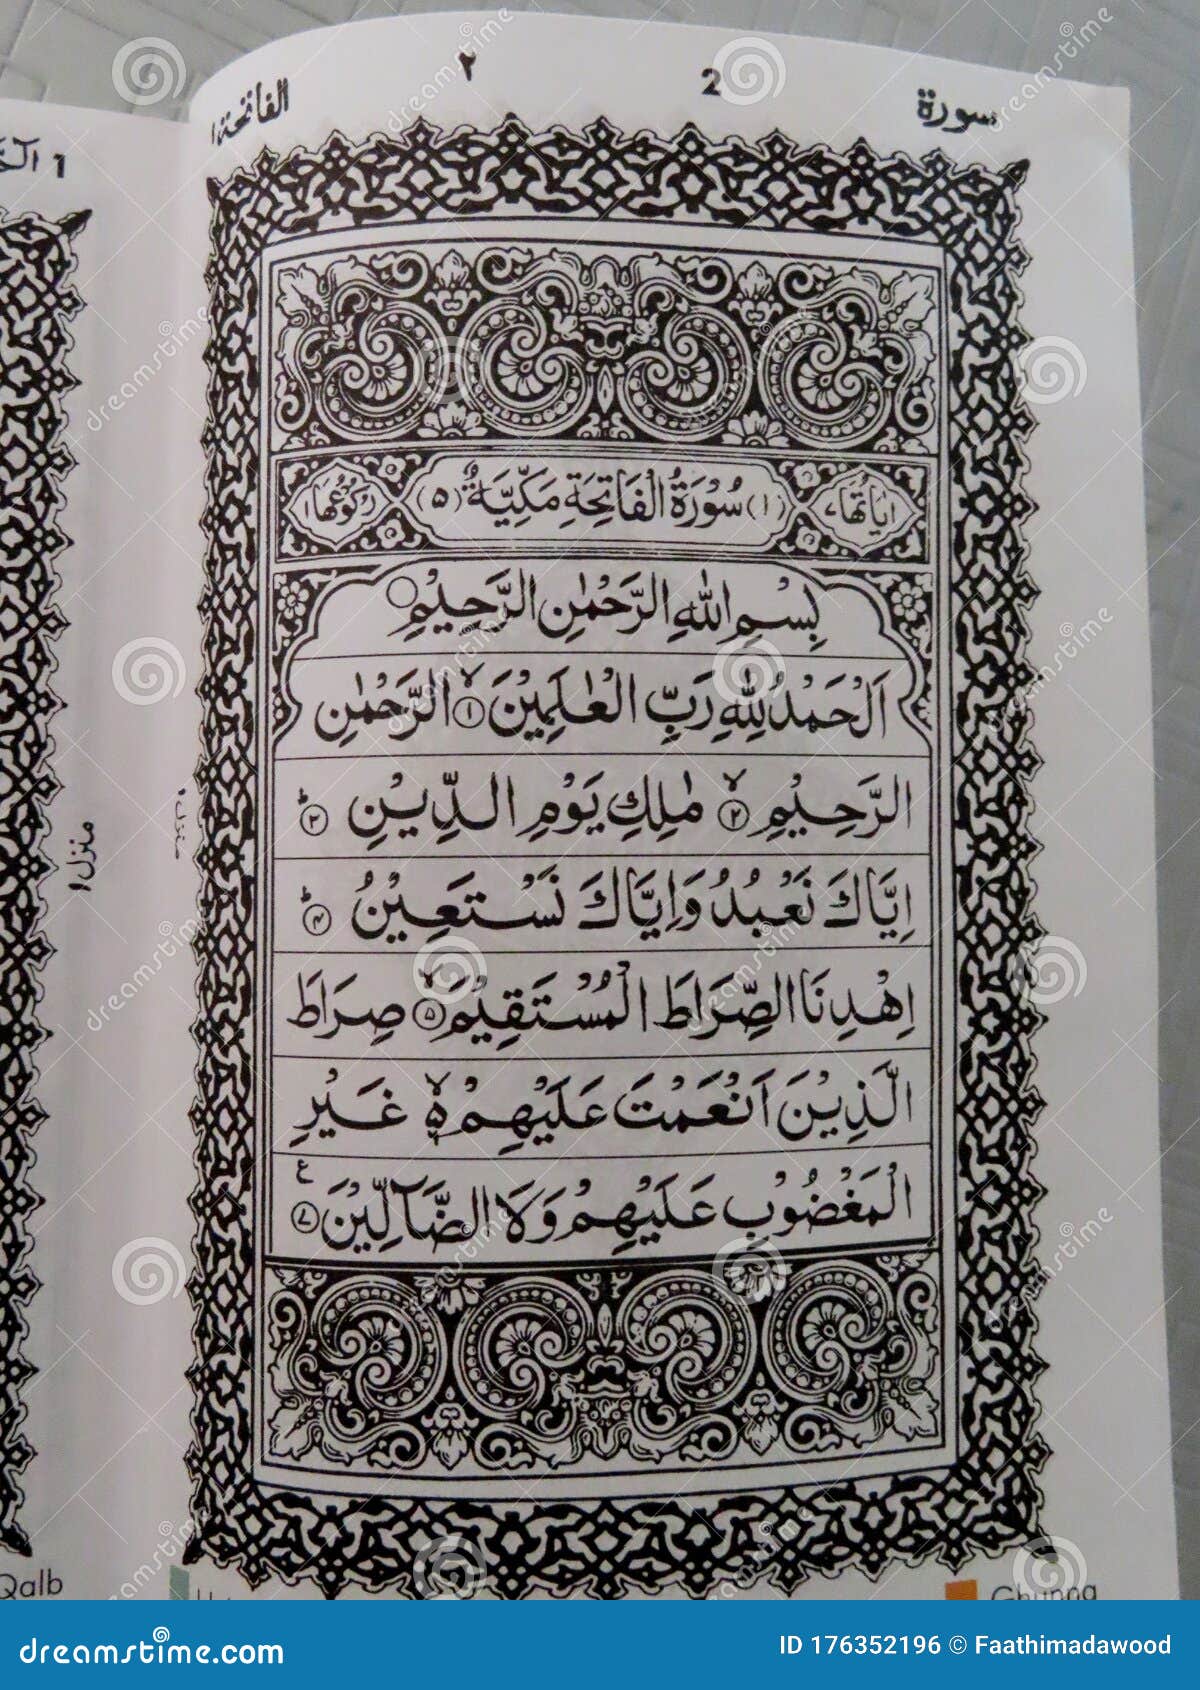 سورة 2 ٢ الفاتحة ١
اٰيَاتُهَا ٧ (١) سُوْرَةُ الْفَاتِحَةِ مَكِّيَّةٌ (٥) رُكُوْعُهَا
بِسْمِ اللّٰهِ الرَّحْمٰنِ الرَّحِيْمِ
اَلْحَمْدُ لِلّٰهِ رَبِّ الْعٰلَمِيْنَ ۙ﴿١﴾ الرَّحْمٰنِ
الرَّحِيْمِ ۙ﴿٢﴾ مٰلِكِ يَوْمِ الدِّيْنِ ؕ﴿٣﴾
اِيَّاكَ نَعْبُدُ وَاِيَّاكَ نَسْتَعِيْنُ ؕ﴿٤﴾
اِهْدِنَا الصِّرَاطَ الْمُسْتَقِيْمَ ۙ﴿٥﴾ صِرَاطَ
الَّذِيْنَ اَنْعَمْتَ عَلَيْهِمْ ۙ۬ۥ غَيْرِ
الْمَغْضُوْبِ عَلَيْهِمْ وَلَا الضَّآلِّيْنَ ﴿٧﴾ ع
منزل ١
1
منزل ١
Qalb
Ghunna
dreamstime.com
ID 176352196 © Faathimadawood